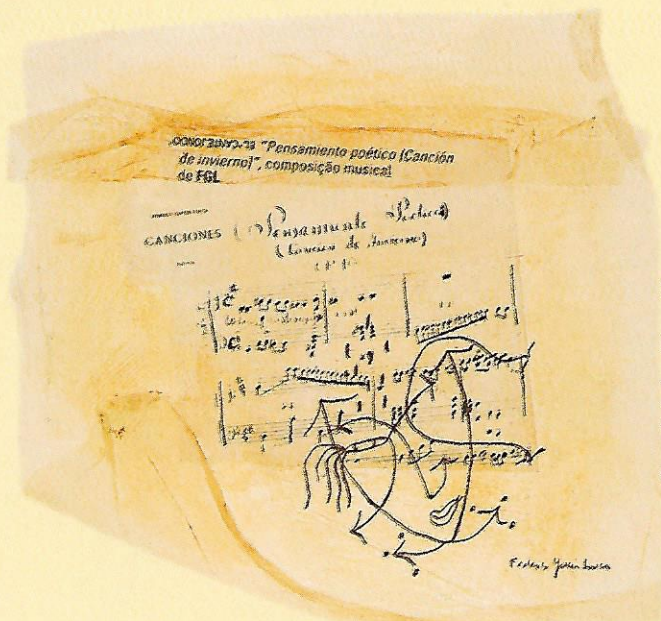 "Pensamiento poético (Canción
de invierno)", composição musical
de FGL
CANCIONES (Pensamiento Poético)
(Canción de Invierno)